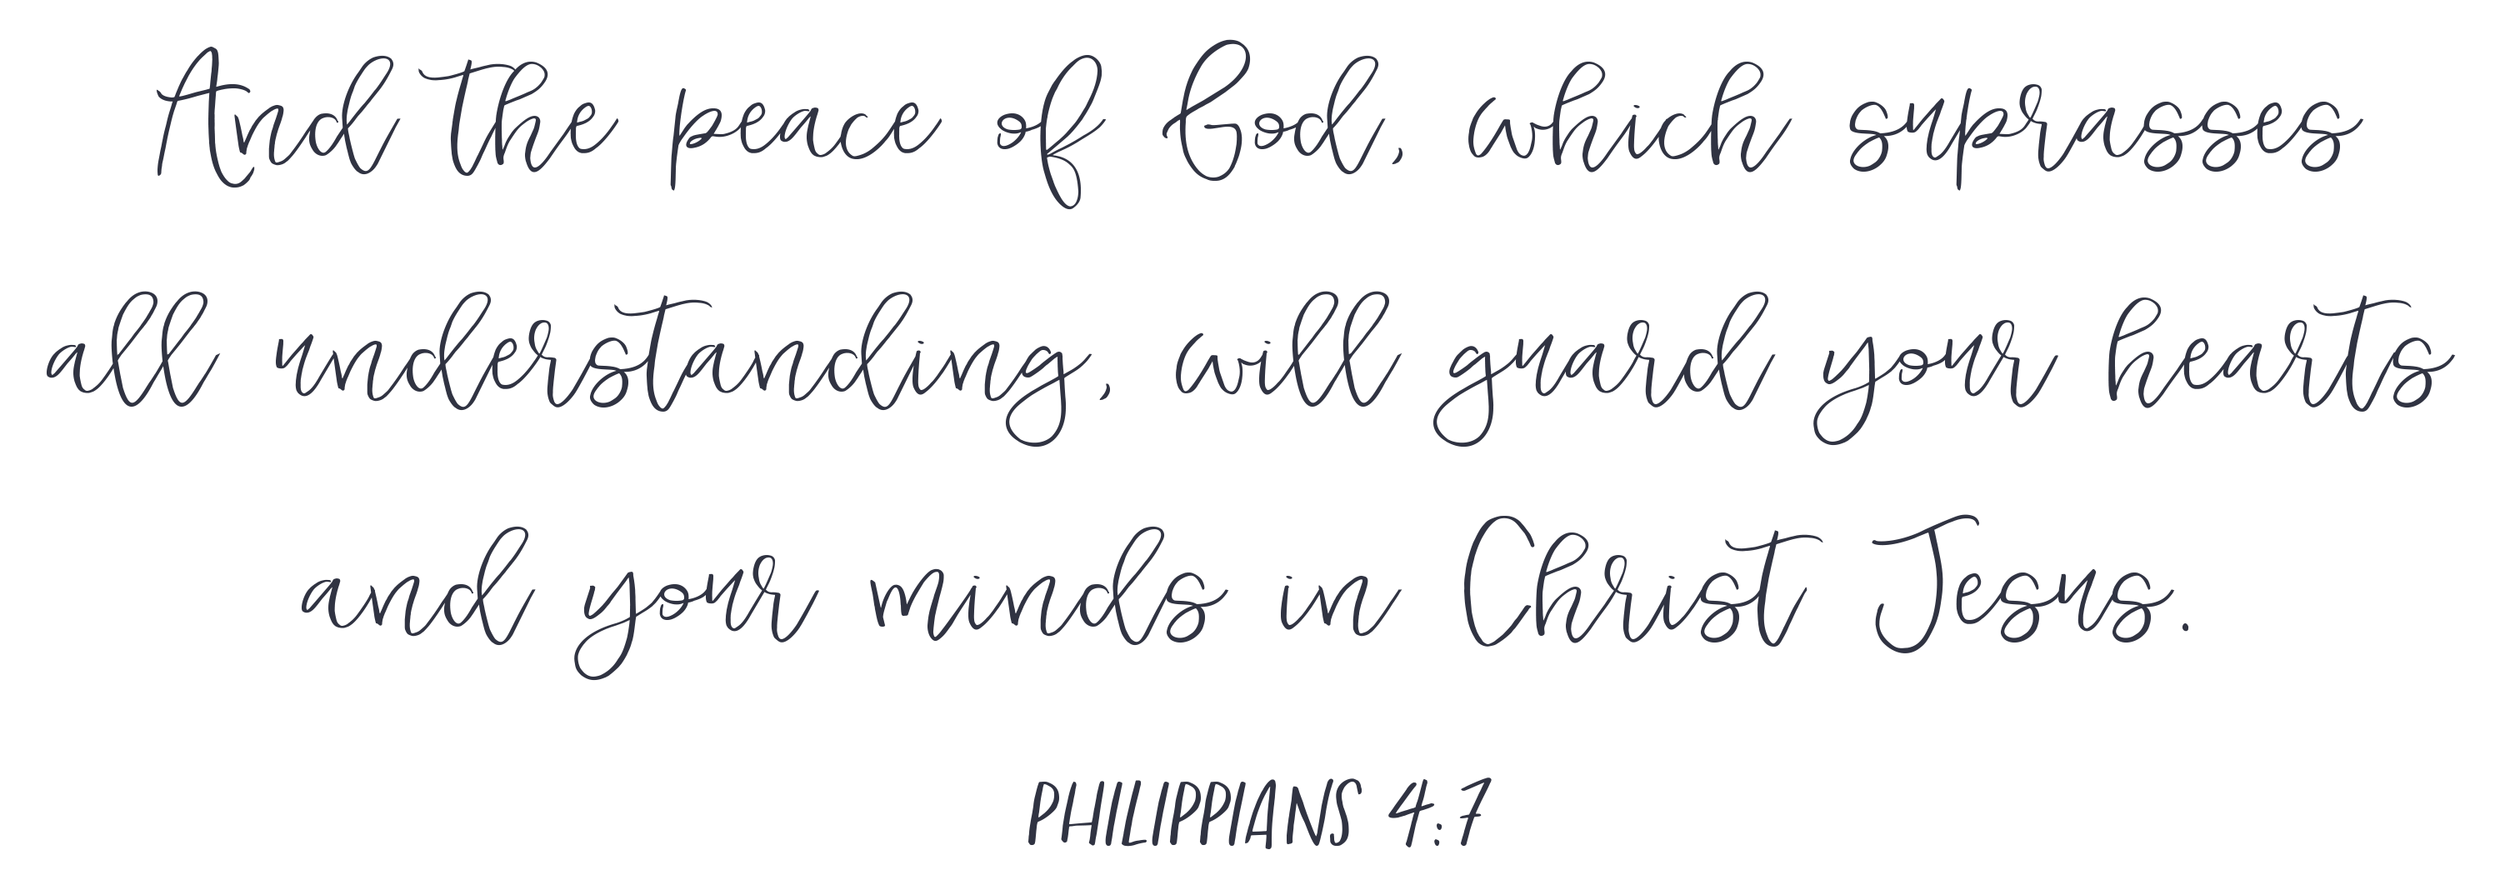 And the peace of God, which suprasses
all understanding, will guard your hearts
and your minds in Christ Jesus.
PHILIPPIANS 4:7